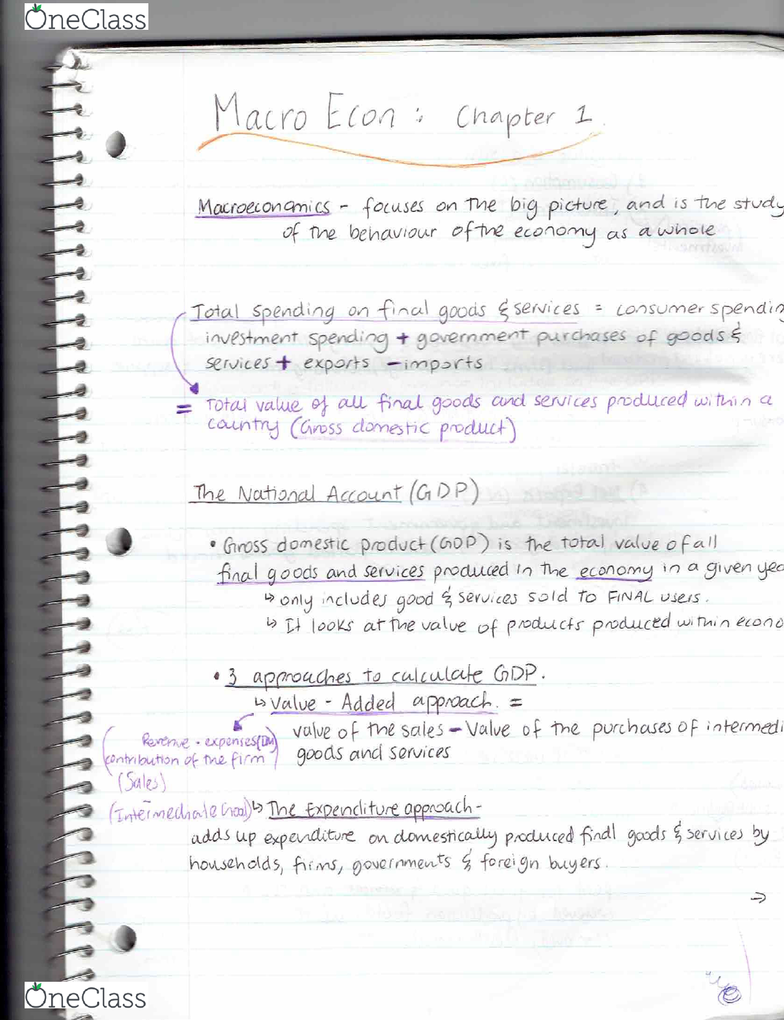 OneClass
Macro Econ : Chapter 1.
Macroeconomics - focuses on the big picture, and is the study
of the behaviour of the economy as a whole
Total spending on final goods & services = consumer spendin
investment spending + government purchases of goods &
services + exports - imports
= Total value of all final goods and services produced within a
country (Gross domestic product)
The National Account (GDP)
• Gross domestic product (GDP) is the total value of all
final goods and services produced in the economy in a given yea
↳ only includes good & services sold to FINAL users.
↳ It looks at the value of products produced within econo
• 3 approaches to calculate GDP.
↳ Value - Added approach. =
value of the sales - Value of the purchases of intermedi
goods and services
(Revenue - expenses
contribution of the firm)
(Sales)
(Intermediate Good) ↳ The Expenditure approach -
adds up expenditure on domestically produced final goods & services by
households, firms, governments & foreign buyers.
→
OneClass